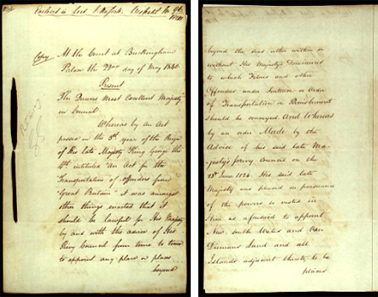 Copy
At the Court at Buckingham
Palace the 22nd day of May 1840
Present
The Queens Most Excellent Majesty
in Council
Whereas by an Act
passed in the 5th year of the Reign
of His Late Majesty King George the
4th intituled An Act for the
Transportation of offenders from
Great Britain it was amongst
other things enacted that it
should be lawful for His Majesty
by and with the advice of His
Privy Council from time to time
to appoint any place or places
beyond
beyond the Seas either within or
without His Majesty's Dominions
to which Felons and other
Offenders under Sentence or Order
of Transportation or Banishment
should be conveyed And Whereas
by an order Made by the
Advice of his said late Ma-
jesty's Privy Council on the
23rd June 1824 His said late
Majesty was pleased in pursuance
of the powers so vested in
Him as aforesaid to appoint
New South Wales and Van
Diemens Land and all
Islands adjacent thereto to be
Places